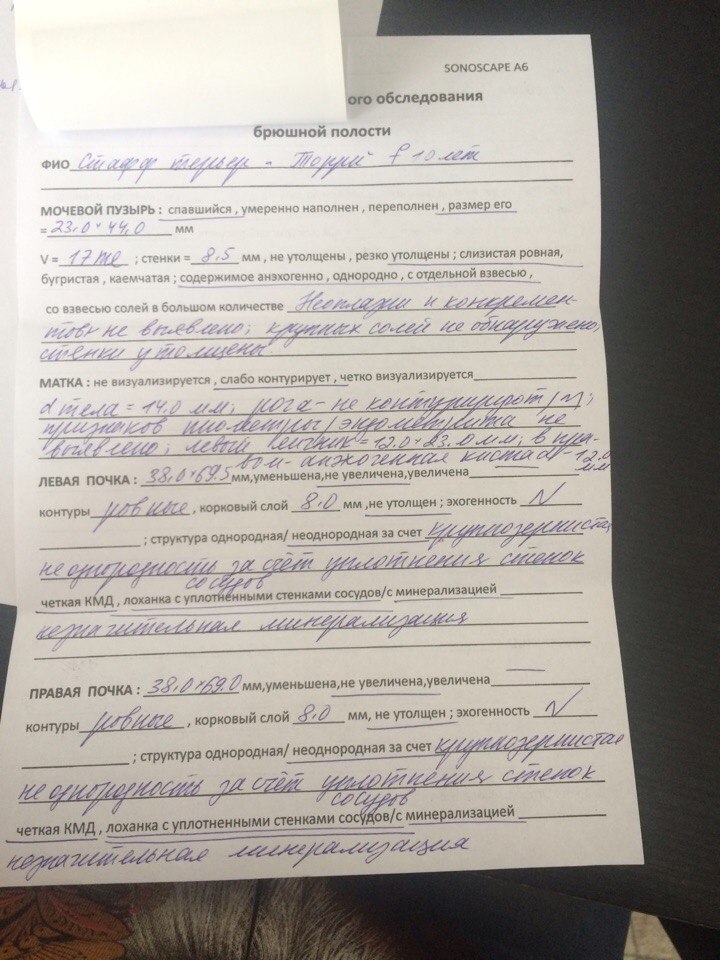 SONOSCAPE A6
ого обследования
брюшной полости
ФИО Стафф терьер - Торри f 10 лет
МОЧЕВОЙ ПУЗЫРЬ : спавшийся , умеренно наполнен , переполнен , размер его
= 23,0 * 44,0 мм
V = 17 ; стенки = 8,5 мм , не утолщены , резко утолщены ; слизистая ровная,
бугристая , каемчатая ; содержимое анэхогенно , однородно , с отдельной взвесью ,
со взвесью солей в большом количестве Неоплазии и конкремен-
тов не выявлено; крупных солей не обнаружено,
стенки утолщены
МАТКА : не визуализируется , слабо контурирует , четко визуализируется
d тела = 14,0 мм; рога - не контурируют / N;
признаков пиометры / эндометрита не
выявлено; левый яичник = 12,0 * 23,0 мм; в пра-
вом - анэхогенная киста d - 12,0 мм
ЛЕВАЯ ПОЧКА : 38,0 * 69,5 мм,уменьшена,не увеличена,увеличена
контуры ровные , корковый слой 8,0 мм ,не утолщен ; эхогенность N
; структура однородная/ неоднородная за счет крупнозернистая
неоднородность за счёт уплотнения стенок
сосудов
четкая КМД , лоханка с уплотненными стенками сосудов/с минерализацией
незначительная минерализация
ПРАВАЯ ПОЧКА : 38,0 * 69,0 мм,уменьшена,не увеличена,увеличена
контуры ровные , корковый слой 8,0 мм, не утолщен ; эхогенность N
; структура однородная/ неоднородная за счет крупнозернистая
неоднородность за счёт уплотнения стенок
сосудов
четкая КМД , лоханка с уплотненными стенками сосудов/с минерализацией
незначительная минерализация